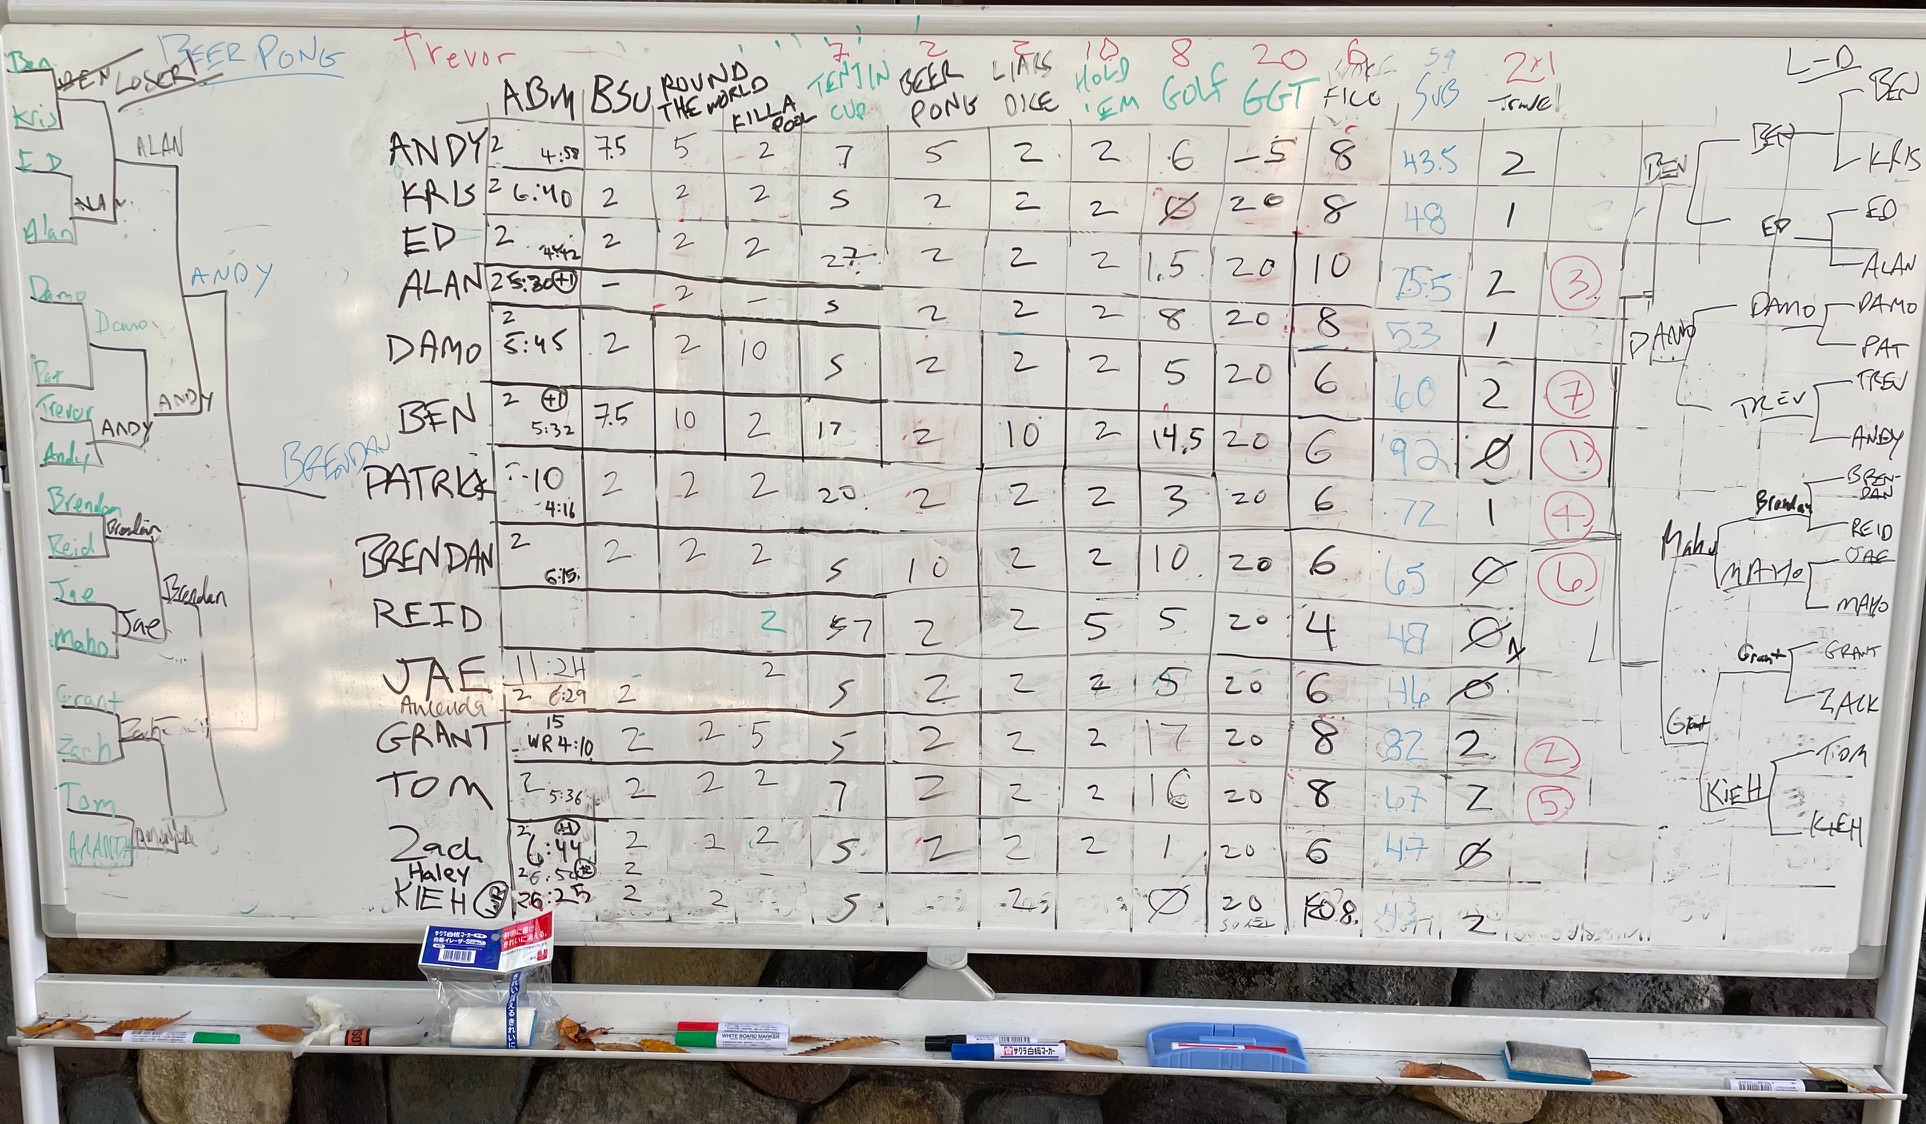 BEER PONG
BEN LOSER!
Ben
Kris
ED
Alan
ALAN
Damo
Pat
Damo
Trevor
Andy
ANDY
ANDY
ANDY
Brendan
Reid
Brendan
Jae
Maho
Jae
Brendan
BRENDAN
Grant
Zach
Zach
Tom
AMANDA
Trevor 7 2 2 10 8 20 6 59 2+1
ABM BSU ROUND THE WORLD KILLA POOL TENJIN CUP BEER PONG LIARS DICE HOLD 'EM GOLF GGT FICO SUB Travel
ANDY 2 4:58 7.5 5 2 7 5 2 2 6 -5 8 43.5 2
KRIS 2 6:40 2 2 2 5 2 2 2 Ø 20 8 48 1
ED 2 4:42 2 2 2 27 2 2 2 1.5 20 10 75.5 2 3
ALAN 2 5:30 +1 - 2 - 5 2 2 2 8 20 8 53 1
DAMO 2 5:45 2 2 10 5 2 2 2 5 20 6 60 2 7
BEN 2 +1 5:32 7.5 10 2 17 2 10 2 14.5 20 6 92 Ø 1
PATRICK 10 4:16 2 2 2 20 2 2 2 3 20 6 72 1 4
BRENDAN 2 6:15 2 2 2 5 10 2 2 10 20 6 65 Ø 6
REID 2 57 2 2 5 5 20 4 48 Ø
JAE 11:24 2 5 2 2 2 5 20 6 46 Ø
Amanda 2 6:29 2
GRANT 15 WR 4:10 2 2 5 5 2 2 2 17 20 8 82 2 2
TOM 2 5:36 2 2 2 7 2 2 2 16 20 8 67 2 5
Zach 2 +1 6:44 2 2 2 5 2 2 2 1 20 6 47 Ø
Haley 2 6:50 2
KIEH 2 6:25 2 2 5 2 Ø 20 8 2
L-D
BEN
KRIS
BEN
BEN
ED
ED
ALAN
DAMO
DAMO
DAMO
PAT
TREV
TREV
ANDY
BRENDAN
Brendan
REID
Maho
JAE
MAHO
MAHO
Grant
GRANT
ZACK
Grant
TOM
KIEH
KIEH
WHITE BOARD MARKER
サクラ白板マーカー